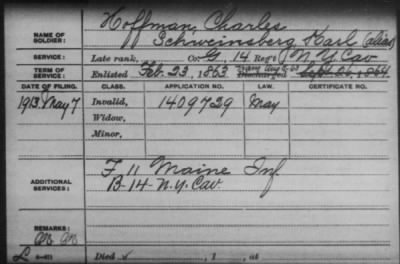 NAME OF SOLDIER: Hoffman, Charles
Schweinsberg, Karl (alias)
SERVICE: Late rank, Co. G, 14 Reg't N.Y. Cav
TERM OF SERVICE: Enlisted Feb. 23, 1863 Discharged Sept. 26, 1864
DATE OF FILING. CLASS. APPLICATION NO. LAW. CERTIFICATE NO.
1913 May 7 Invalid, 1409729 May
Widow,
Minor,
ADDITIONAL SERVICES: F 11 Maine Inf
B-14-N.Y. Cav.
REMARKS:
Died , 1 , at